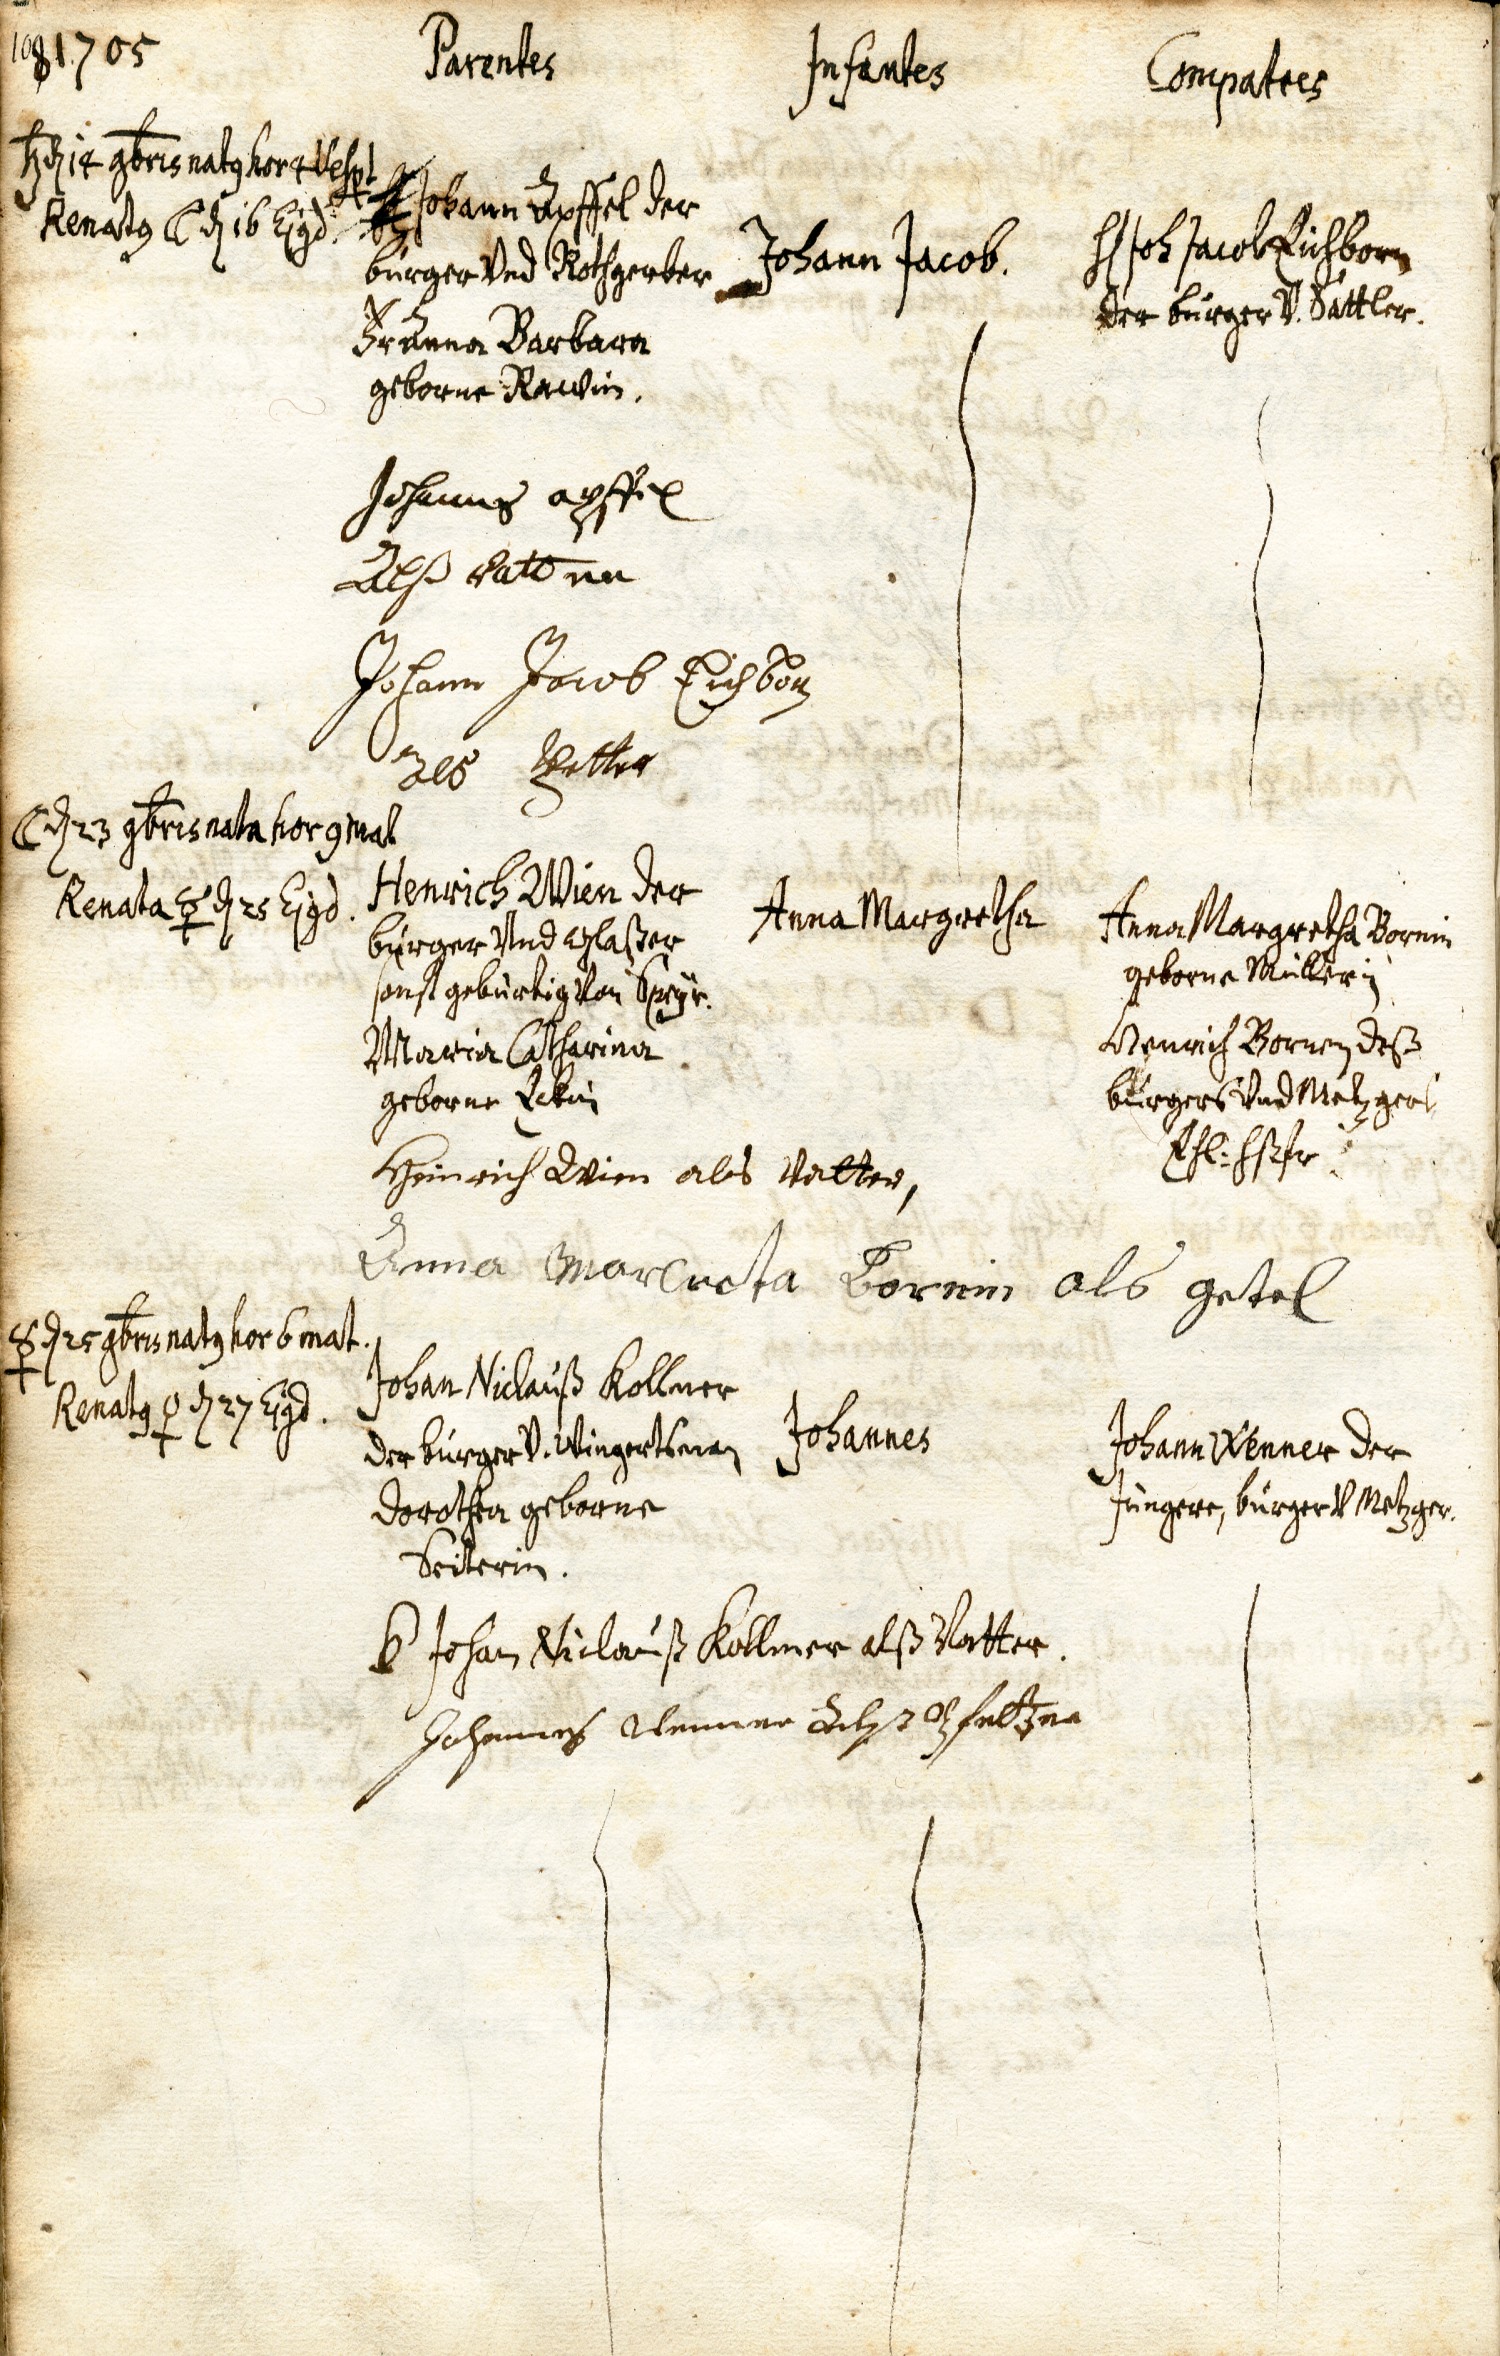 108 1705
Parentes
Infantes
Compatres
♄ d 14 9bris nat9 hor 4 Vesp
Renat9 ☾ d 16 Ejqd.
Johann Äpffel der
bürger Vnd Rothgerber
Fr Anna Barbara
geborne Rawin.
Johann Jacob.
H Joh Jacob Eichborn
der bürger V. Sattler.
Johannes apffel
Alß Vatter
Johann Jacob Eichborn
Als Vetter
☾ d 23 9bris nata hor 9 mat
Renata ☿ d 25 Ejqd.
Henrich Wien der
bürger Vnd Glaßer
sonst gebürtig von Speyr.
Maria Catharina
geborne
Anna Margretha
Anna Margretha Bornin
geborne Müllerin
Henrich Bornen deß
bürgers Vnd Metzgers
Ehl: Hßfr
Heinrich Wien als Vatter,
Anna Marcreta Bornin als getel
☿ d 25 9bris nat9 hor 6 mat.
Renat9 ♀ d 27 Ejqd.
Johan Niclauß Kollmer
der bürger V. Wingertsman
Dorothea geborne
Seilerin.
Johannes
Johann Wenner der
Jüngere, bürger V Metzger.
Johan Niclauß Kollmer alß Vatter.
Johannes Wenner Alß